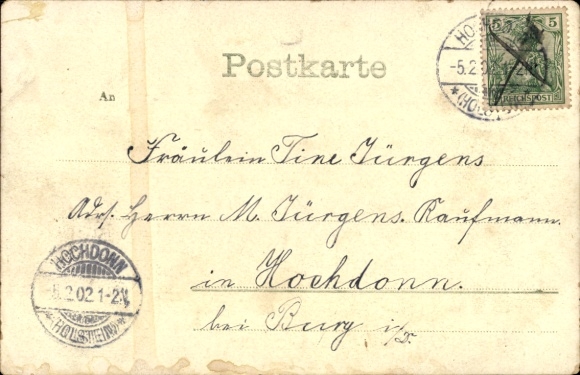 Postkarte
5 5
REICHSPOST
-5.2.
An
Fräulein Tine Jürgens
Adrs. Herrn M. Jürgens. Kaufmann.
in Hochdonn.
bei Burg i/D.
HOCHDONN
-5.2.02.1-2N.
*(HOLSTEIN)*